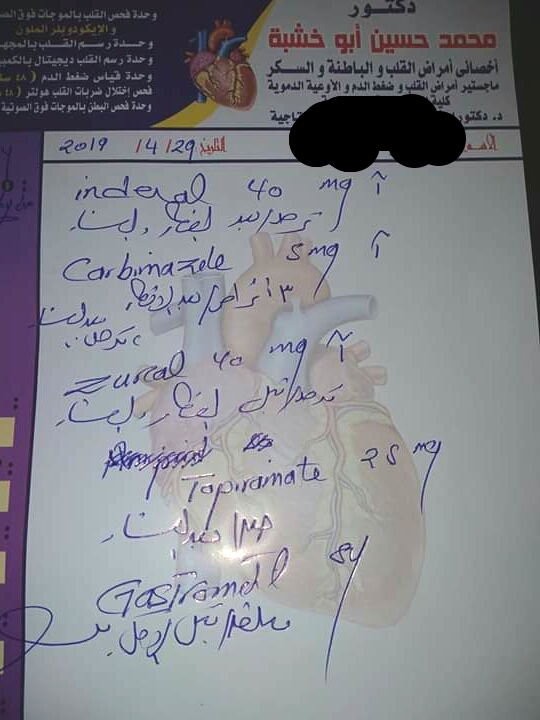 دكتور
محمد حسين أبو خشبة
أخصائى أمراض القلب و الباطنة و السكر
ماجستير أمراض القلب و ضغط الدم و الأوعية الدموية
كلية
د. دكتور
وحدة فحص القلب بالموجات فوق الص
و الإيكودوبلر الملون
وحدة رسم القلب بالمجه
وحدة رسم القلب ديجيتال بالكمب
وحدة قياس ضغط الدم ( ٤٨ سا
فحص إختلال ضربات القلب هولتر ( ٤٨ س
وحدة فحص البطن بالموجات فوق الصوتية
التاريخ 29 / 4 / 2019
inderal 40 mg
قرص بعد الفطار والعشاء
Carbimazole 5 mg
٣ أقراص بعد الفطار
بعد العشاء
Zurcal 40 mg
قرص قبل الفطار والعشاء
Topiramate 25 mg
بعد العشاء
Gastromotil
ملعقة قبل الأكل